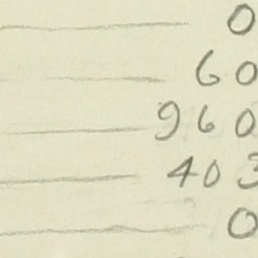 0
60
960
403
0